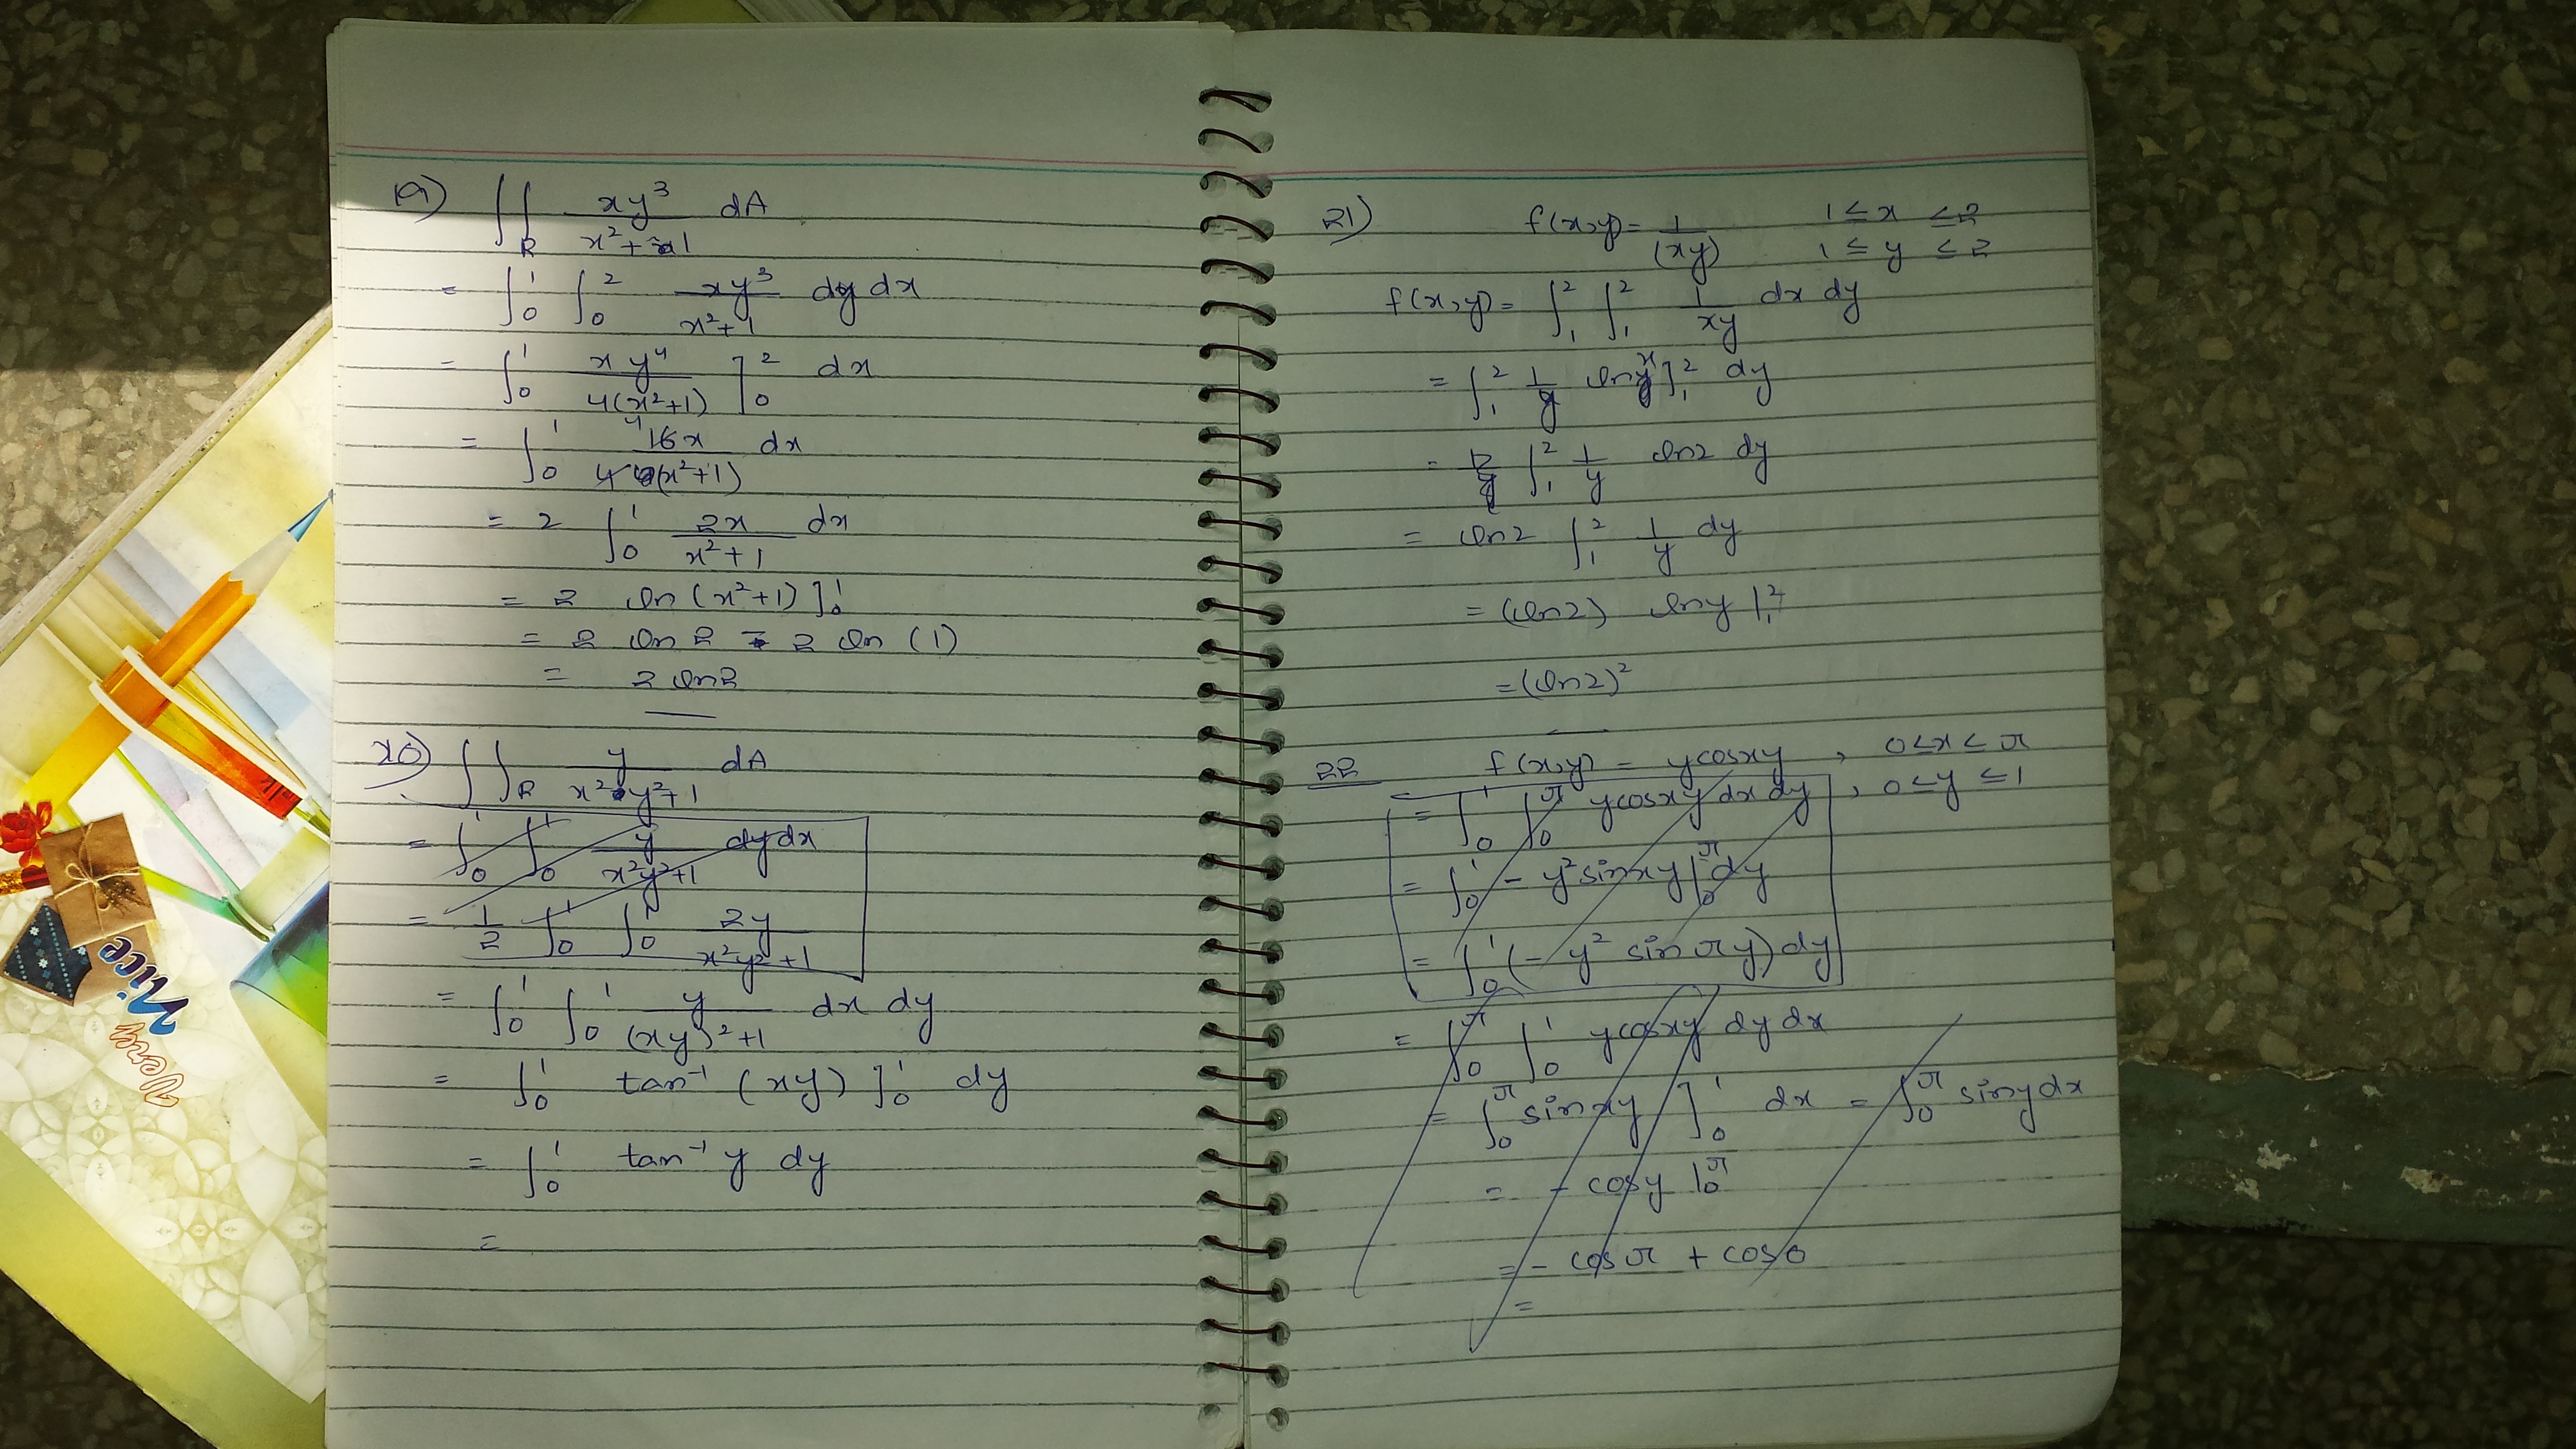 19) ∫∫_R xy³/(x²+1) dA
= ∫₀¹ ∫₀² xy³/(x²+1) dy dx
= ∫₀¹ xy⁴/4(x²+1) ]₀² dx
= ∫₀¹ 16x/4(x²+1) dx
= 2 ∫₀¹ 2x/(x²+1) dx
= 2 ln(x²+1) ]₀¹
= 2 ln 2 - 2 ln (1)
= 2 ln2
20) ∫∫_R y/(x²y²+1) dA
= ∫₀¹ ∫₀¹ y/(x²y²+1) dy dx
= 1/2 ∫₀¹ ∫₀¹ 2y/(x²y²+1)
= ∫₀¹ ∫₀¹ y/((xy)²+1) dx dy
= ∫₀¹ tan⁻¹ (xy) ]₀¹ dy
= ∫₀¹ tan⁻¹ y dy
=
21) f(x,y) = 1/(xy) 1 ≤ x ≤ 2
1 ≤ y ≤ 2
f(x,y) = ∫₁² ∫₁² 1/xy dx dy
= ∫₁² 1/y ln x ]₁² dy
= ∫₁² 1/y ln2 dy
= ln2 ∫₁² 1/y dy
= (ln2) ln y |₁²
= (ln2)²
22 f(x,y) = y cosxy , 0 < x < π
= ∫₀¹ ∫₀^π y cosxy dx dy , 0 < y ≤ 1
= ∫₀¹ - y² sinxy |₀^π dy
= ∫₀¹ (- y² sin πy) dy
= ∫₀^π ∫₀¹ y cosxy dy dx
= ∫₀^π sinxy ]₀¹ dx = ∫₀^π siny dx
= - cosy |₀^π
= - cos π + cos 0
=
Very
Nice